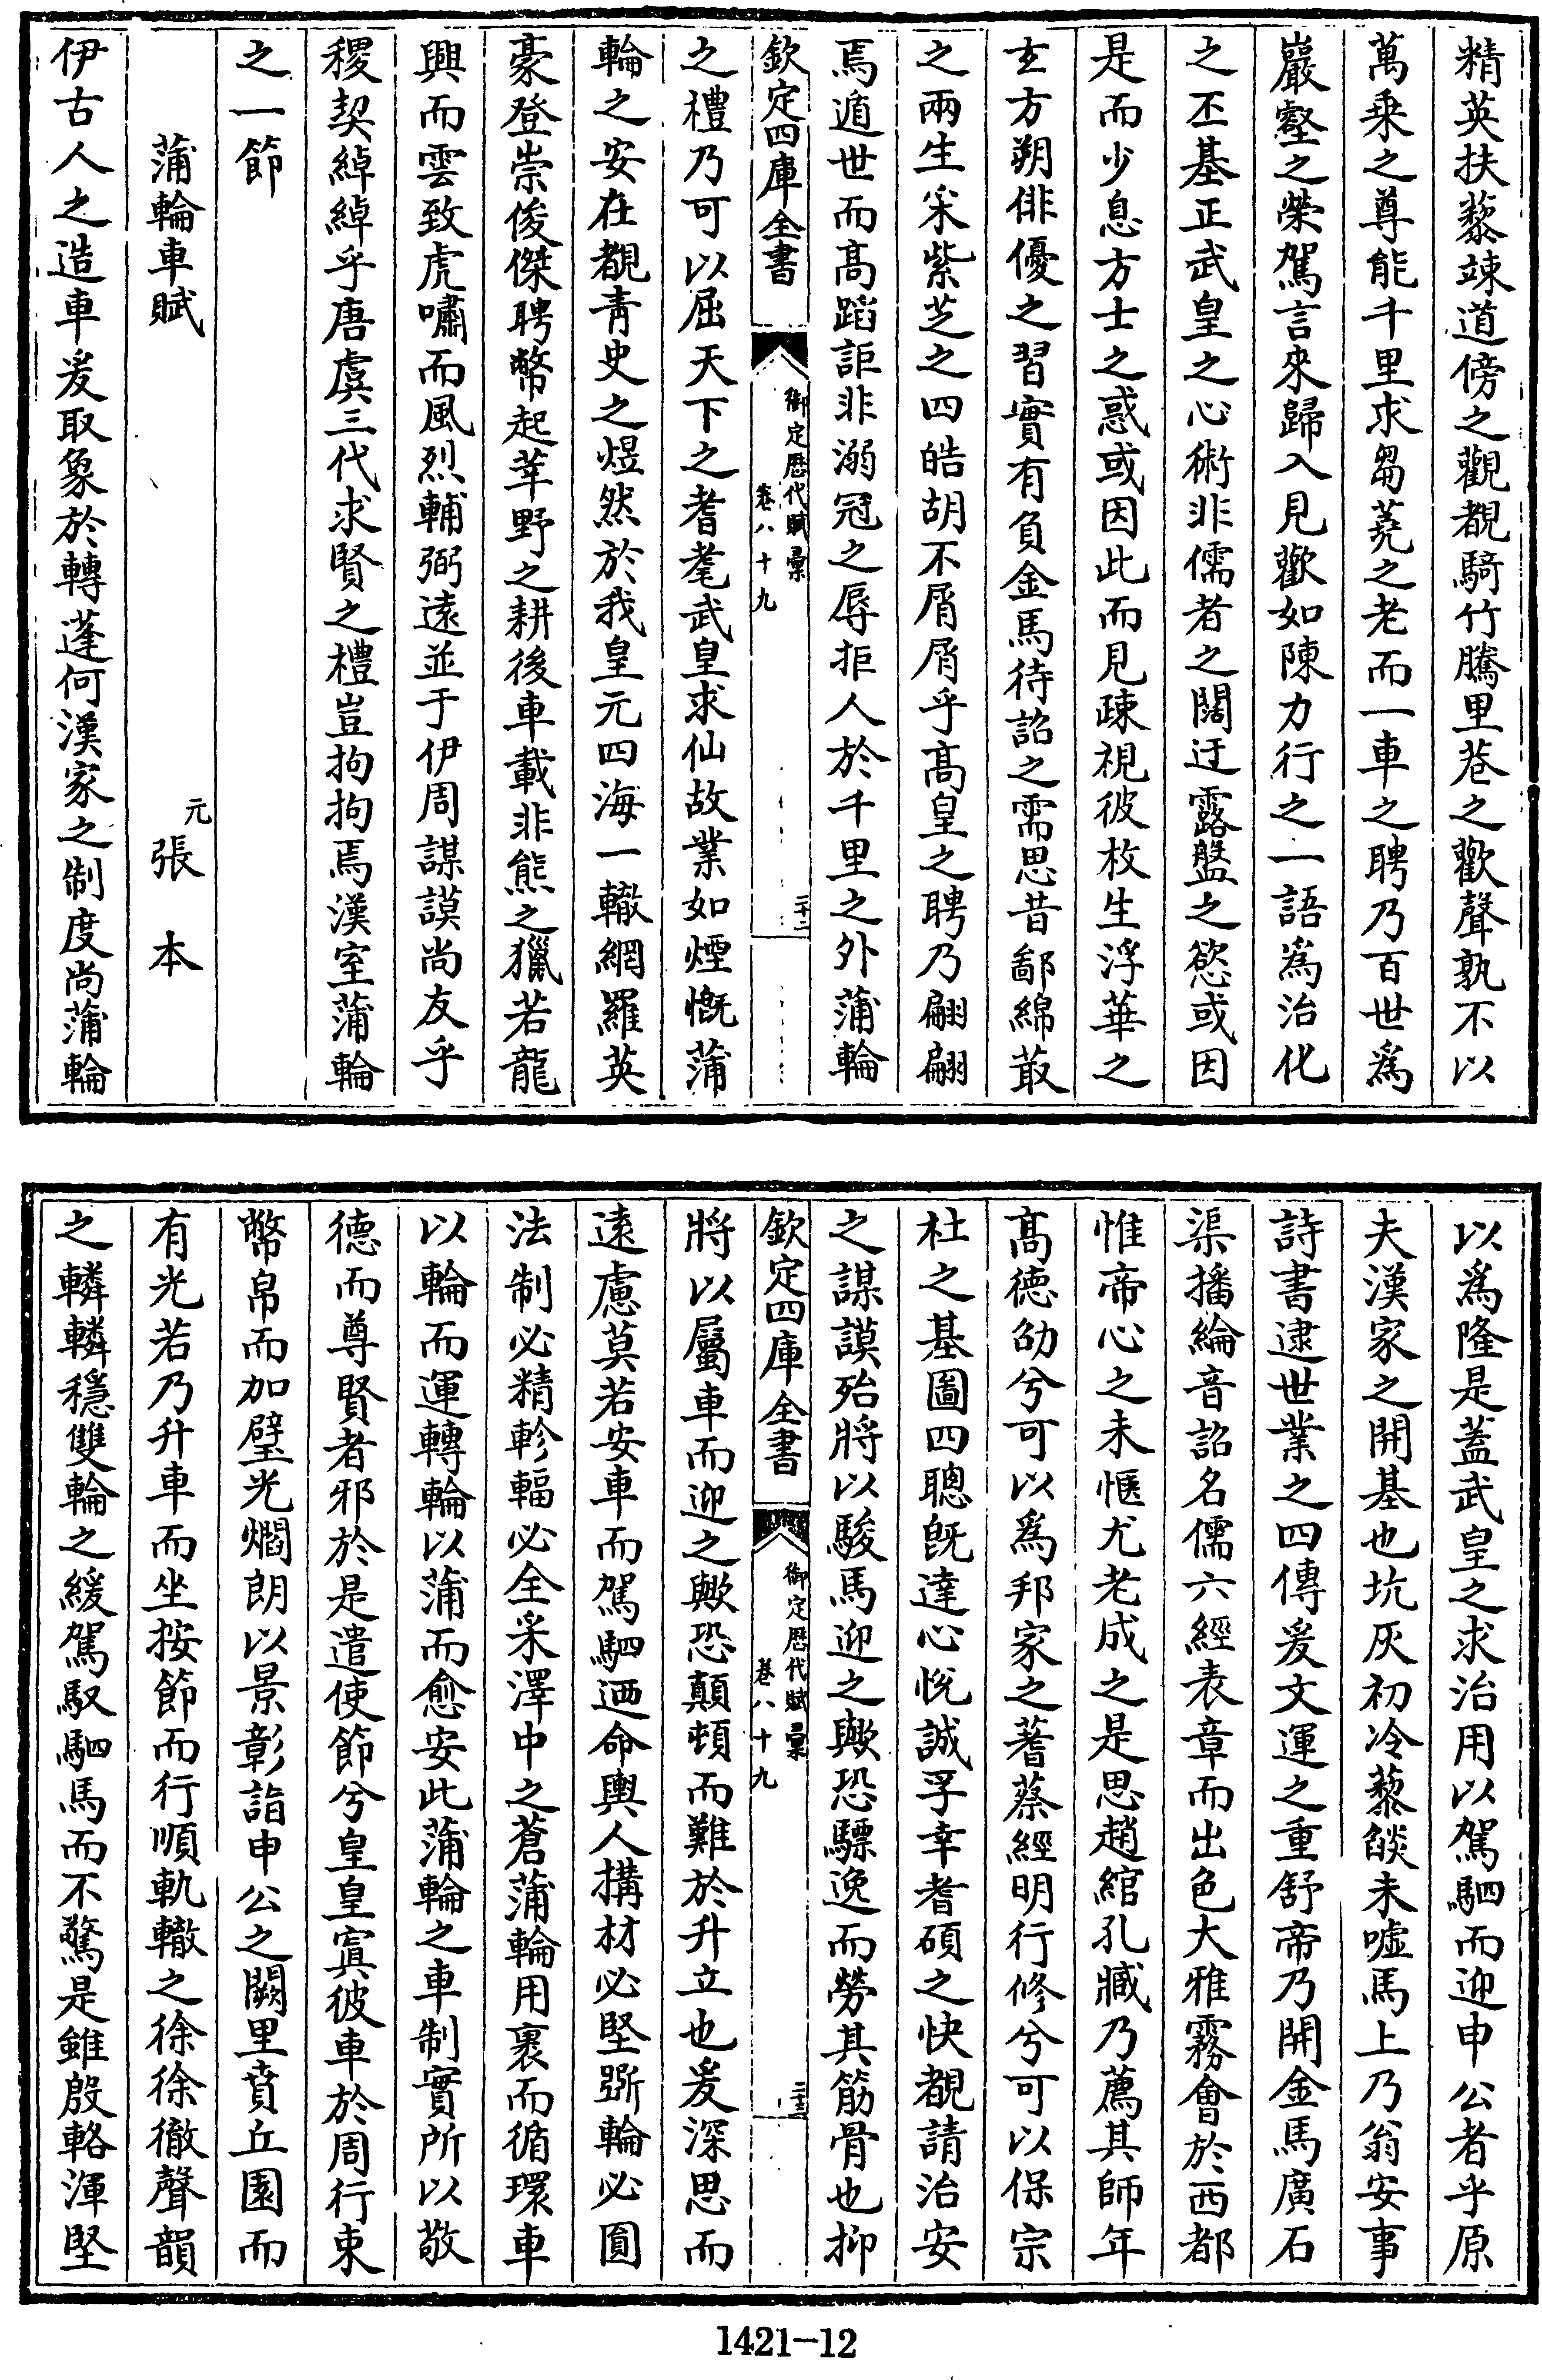 精英扶藜竦道傍之觀覩騎竹騰里巷之歡聲孰不以
萬乗之尊能千里求芻蕘之老而一車之聘乃百世爲
巖壑之榮駕言來歸入見歡如陳力行之一語爲治化
之丕基正武皇之心術非儒者之闊迂露盤之慾或因
是而少息方士之惑或因此而見疎視彼枚生浮華之
𤣥方朔俳優之習實有負金馬待詔之需思昔鄗綿蕞
之兩生采紫芝之四皓胡不屑屑乎高皇之聘乃翩翩
焉遁世而高蹈詎非溺冠之辱拒人於千里之外蒲輪
欽定四庫全書
御定歴代賦彙
卷八十九
二十二
之禮乃可以屈天下之耆耄武皇求仙故業如煙慨蒲
輪之安在覩青史之煜然於我皇元四海一轍網羅英
豪登崇俊傑聘幣起莘野之耕後車載非熊之獵若龍
興而雲致虎嘯而風烈輔弼遠並于伊周謀謨尚友乎
稷契綽綽乎唐虞三代求賢之禮豈拘拘焉漢室蒲輪
之一節
蒲輪車賦
元 張本
伊古人之造車爰取象於轉蓬何漢家之制度尚蒲輪
以爲隆是蓋武皇之求治用以駕駟而迎申公者乎原
夫漢家之開基也坑灰初冷藜燄未噓馬上乃翁安事
詩書逮世業之四傳爰文運之重舒帝乃開金馬廣石
渠播綸音詔名儒六經表章而出色大雅霧會於西都
惟帝心之未愜尤老成之是思趙綰孔臧乃薦其師年
高徳劭兮可以爲邦家之蓍蔡經明行修兮可以保宗
杜之基圖四聰旣達心悦誠孚幸耆碩之快覩請治安
之謀謨殆將以駿馬迎之歟恐驃逸而勞其筋骨也抑
欽定四庫全書
御定歴代賦彙
卷八十九
二十三
將以屬車而迎之歟恐顛頓而難於升立也爰深思而
遠慮莫若安車而駕駟迺命輿人搆材必堅斲輪必圓
法制必精軫輻必全采澤中之蒼蒲輪用裹而循環車
以輪而運轉輪以蒲而愈安此蒲輪之車制實所以敬
德而尊賢者邪於是遣使節兮皇皇寘彼車於周行束
幣帛而加璧光爛朗以景彰詣申公之闕里賁丘園而
有光若乃升車而坐按節而行順軌轍之徐徐徹聲韻
之轔轔穩雙輪之緩駕馭駟馬而不驚是雖殷輅渾堅
1421-12